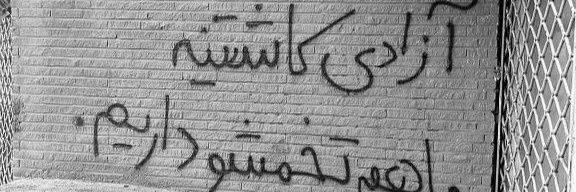 آزادی کاشتنیه
ما همه تخمشو داریم.